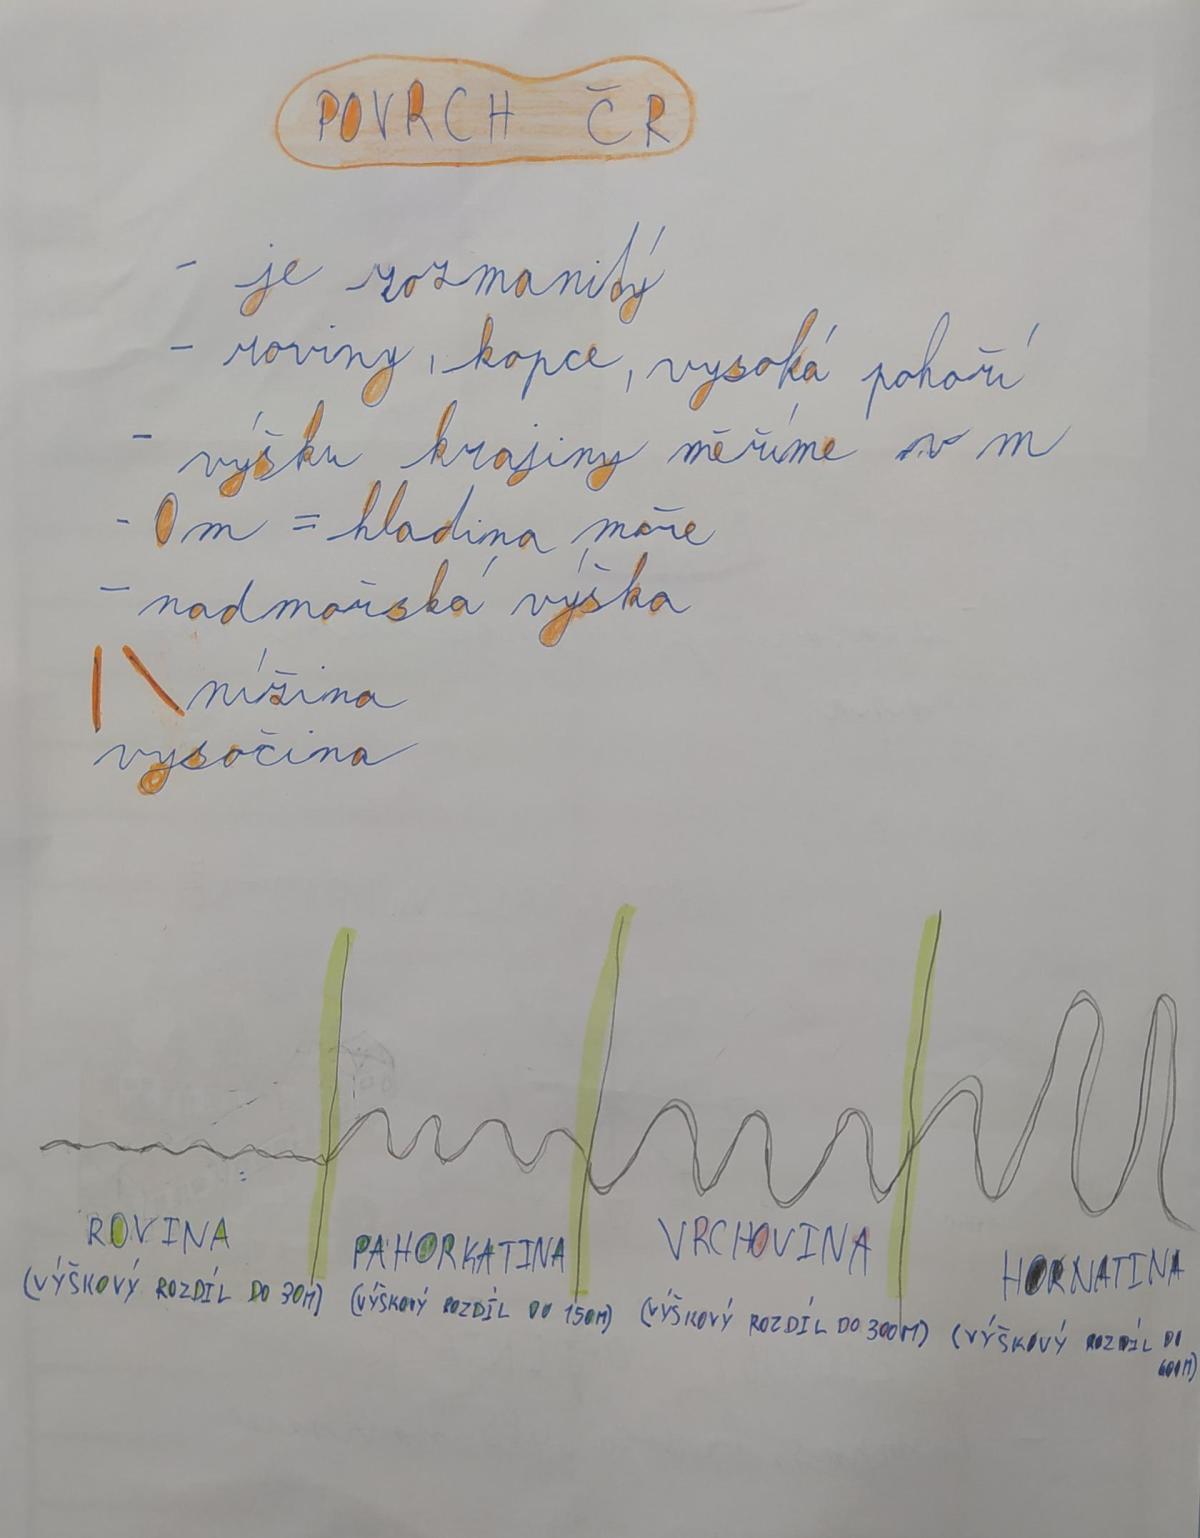 POVRCH ČR
- je rozmanitý
- roviny, kopce, vysoká pohoří
- výšku krajiny měříme v m
- 0 m = hladina moře
- nadmořská výška
nížina
vysočina
ROVINA PAHORKATINA VRCHOVINA HORNATINA
(VÝŠKOVÝ ROZDÍL DO 30M) (VÝŠKOVÝ ROZDÍL DO 150M) (VÝŠKOVÝ ROZDÍL DO 300M) (VÝŠKOVÝ ROZDÍL DO
600M)